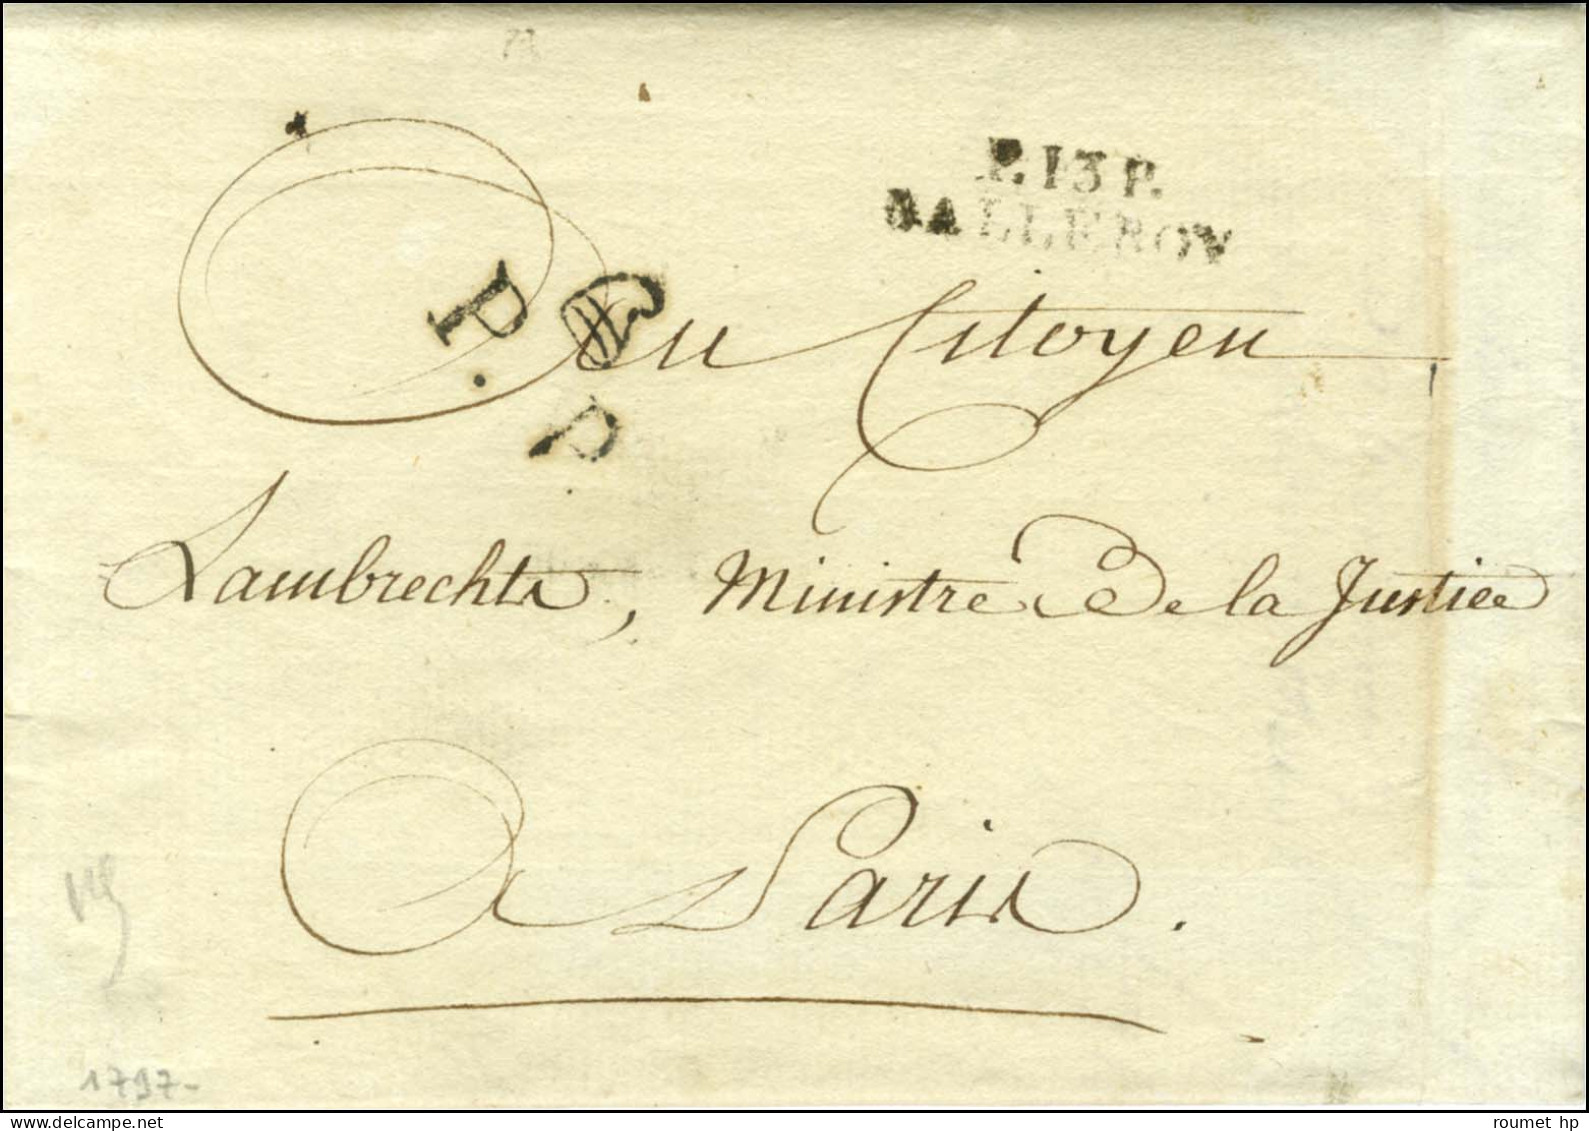 P.13 P.
BALLEROY
P. P
Au Citoyen
Lambrechts, Ministre De la Justice
A Paris.
1797-
roumet hp